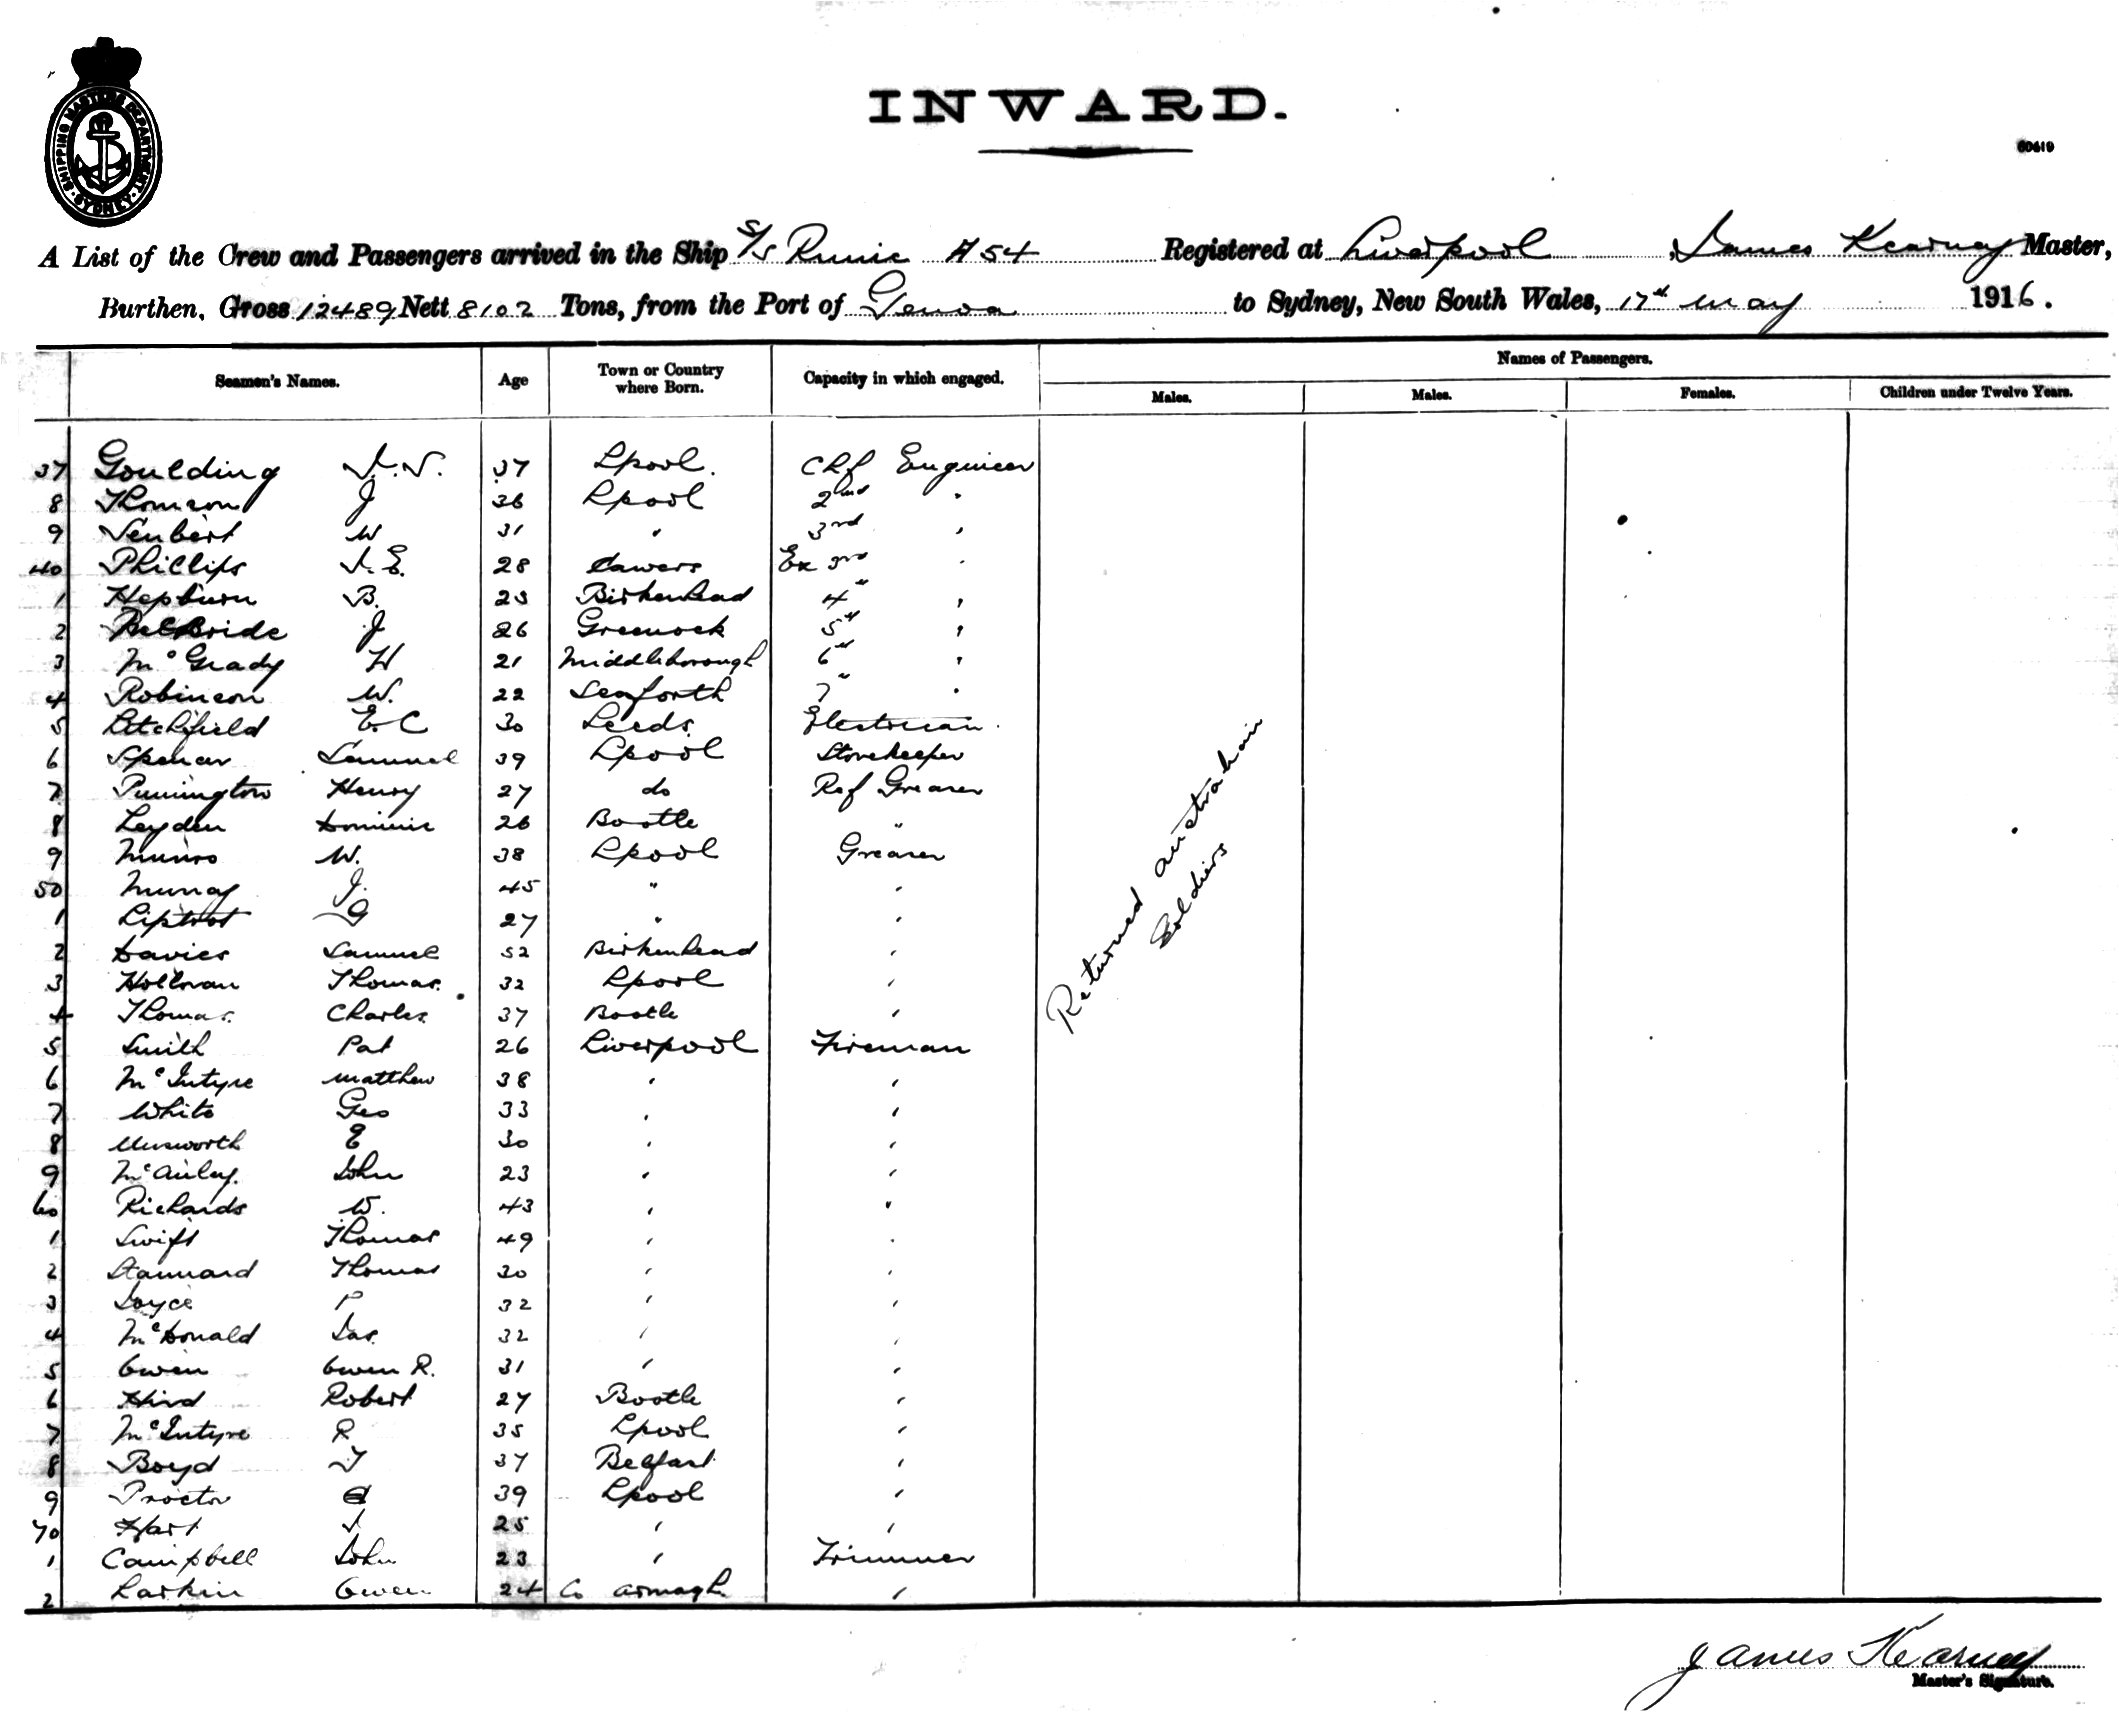 SHIPPING MASTERS DEPARTMENT. SYDNEY.
INWARD.
60419
A List of the Crew and Passengers arrived in the Ship S/S Runic A54 Registered at Liverpool, James Kearney Master,
Burthen, Gross 12489 Nett 8102 Tons, from the Port of Genoa to Sydney, New South Wales, 17th May 1916.
Names of Passengers.
Seamen's Names. Age Town or Country where Born. Capacity in which engaged. Males. Males. Females. Children under Twelve Years.
37 Goulding 37 Lpool. Chf Engineer
8 Thomson J 36 Lpool 2nd "
9 W 31 " 3rd "
40 Phillips J.E. 28 Ex 3rd "
1 Hepburn B. 23 Birkenhead 4th "
2 McBride J 26 Greenock 5th "
3 McGrady H 21 Middleborough 6th "
4 Robinson W. 22 Seaforth 7th "
5 Litchfield E.C 30 Leeds Electrician.
6 Spencer Samuel 39 Lpool Storekeeper
7 Henry 27 do Ref Greaser
8 Leyden Dominic 26 Bootle "
9 Munro W. 38 Lpool Greaser
50 Murray J. 45 " "
1 Liptrot G 27 " "
2 Davies Samuel 52 Birkenhead "
3 Thomas. 32 Lpool "
4 Thomas. Charles. 37 Bootle "
5 Smith Pat 26 Liverpool Fireman
6 McIntyre Matthew 38 " "
7 White Geo 33 " "
8 Unsworth E 30 " "
9 McAuley. John 23 " "
60 Richards W. 43 " "
1 Swift Thomas 49 " "
2 Stannard Thomas 30 " "
3 Joyce P 32 " "
4 McDonald Jas. 32 " "
5 Owen Owen R. 31 " "
6 Hird Robert 27 Bootle "
7 McIntyre R 35 Lpool "
8 Boyd T 37 Belfast "
9 Proctor 39 Lpool "
70 Hart J 25 " "
1 Campbell John 23 " Trimmer
2 Larkin Owen 24 Co Armagh. "
Returned Australian
Soldiers
James Kearney
Master's Signature.